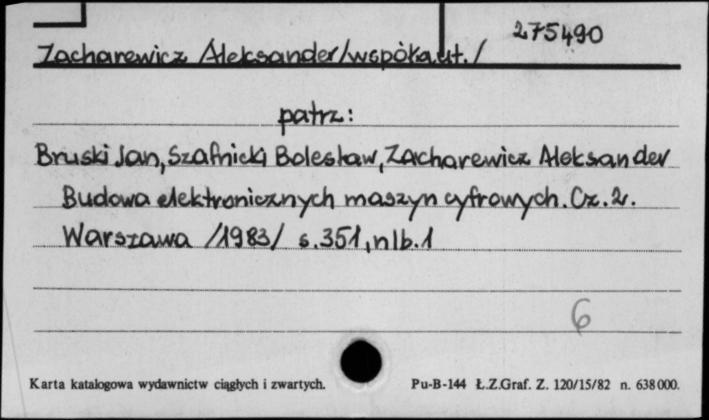 275490
Zacharewicz Aleksander/współaut./
patrz:
Bruski Jan, Szafnicki Bolesław, Zacharewicz Aleksander
Budowa elektronicznych maszyn cyfrowych. Cz. 2.
Warszawa /1983/ s. 351, nlb. 1
6
Karta katalogowa wydawnictw ciągłych i zwartych. Pu-B-144 Ł.Z.Graf. Z. 120/15/82 n. 638000.